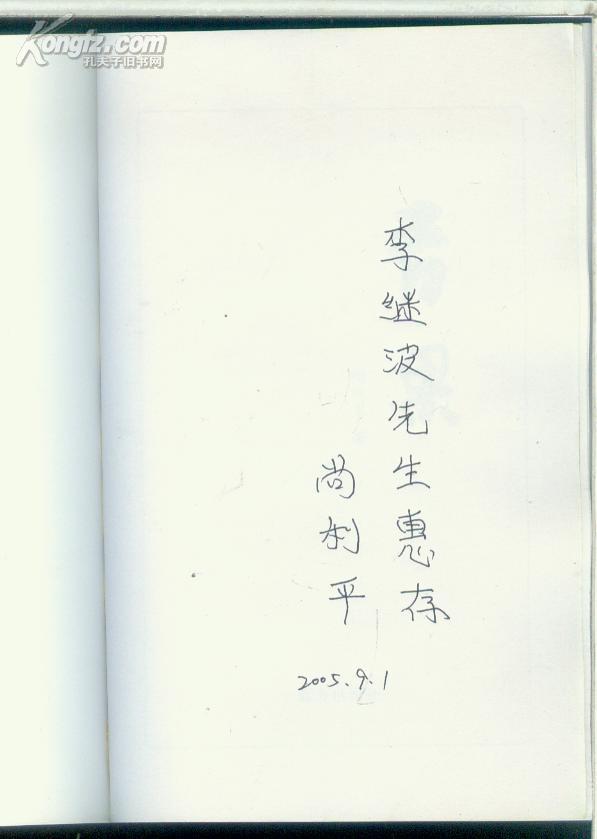 Kongfz.com
孔夫子旧书网
李继波先生惠存
尚利平
2005.9.1